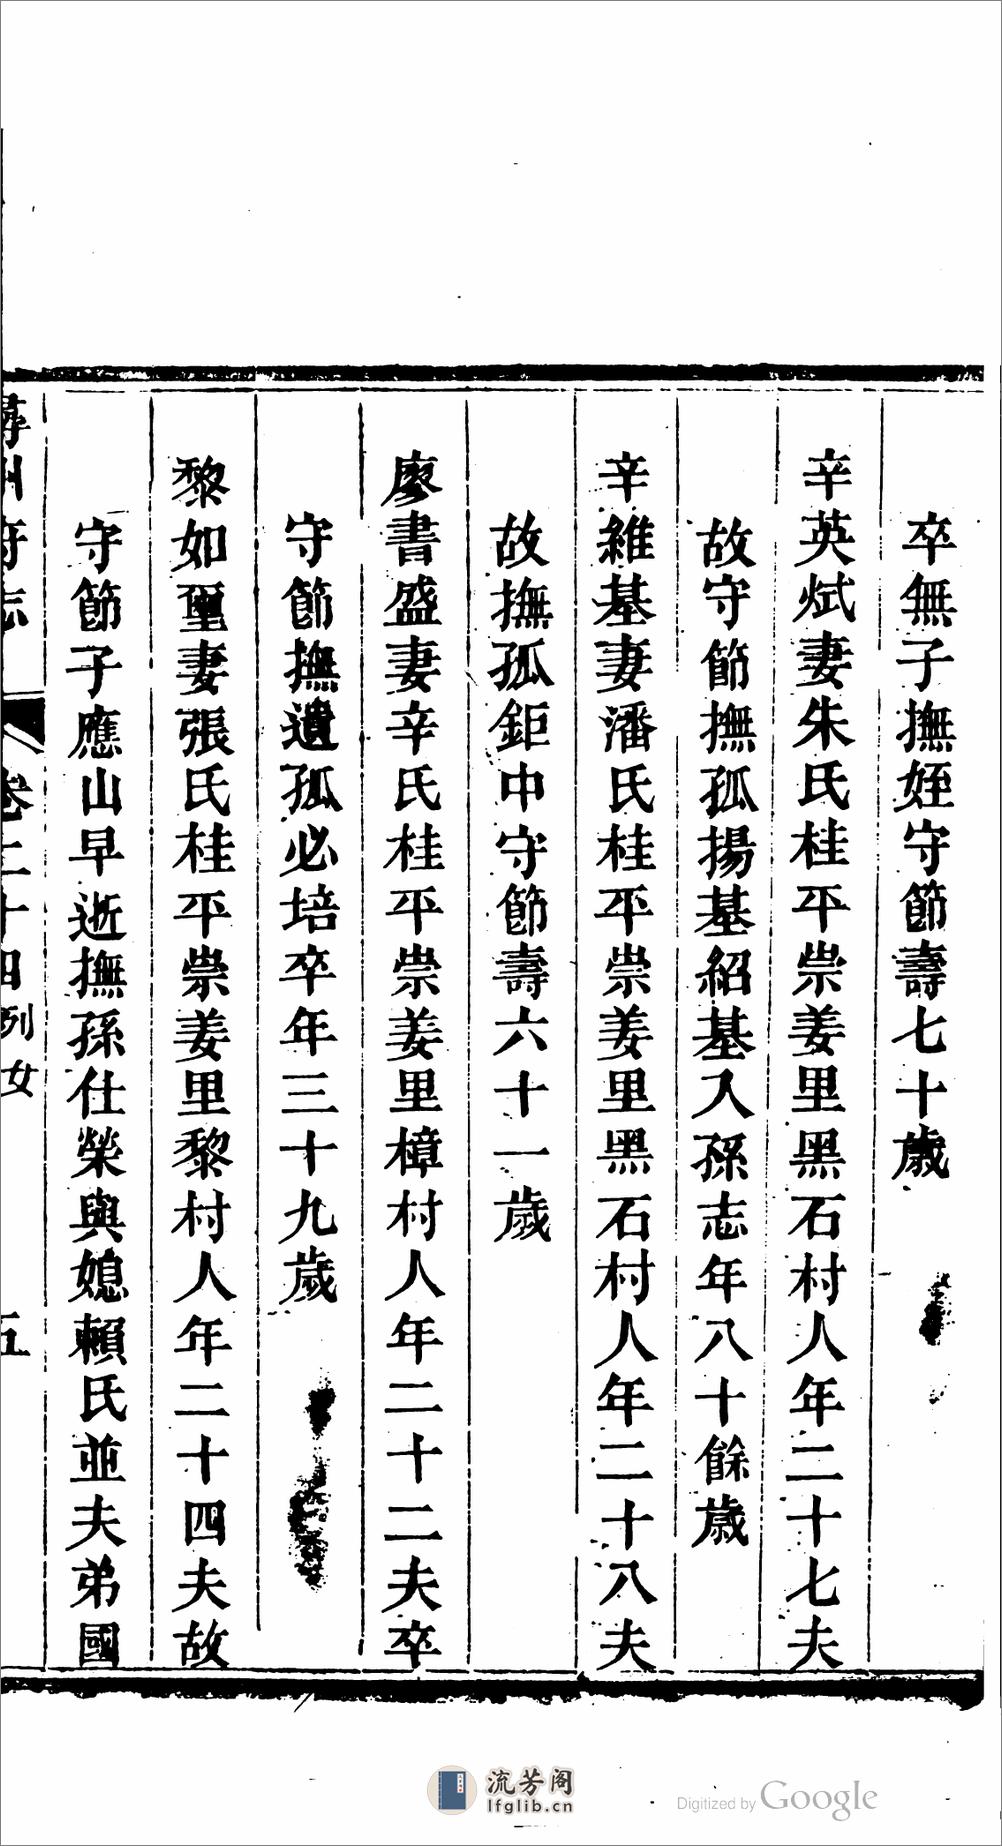 卒無子撫姪守節壽七十歲
辛英斌妻朱氏桂平崇姜里黑石村人年二十七夫
故守節撫孤揚基紹基入孫志年八十餘歲
辛維基妻潘氏桂平崇姜里黑石村人年二十八夫
故撫孤鉅中守節壽六十一歲
廖書盛妻辛氏桂平崇姜里樟村人年二十二夫卒
守節撫遺孤必培卒年三十九歲
黎如璽妻張氏桂平崇姜里黎村人年二十四夫故
守節子應山早逝撫孫仕榮與媳賴氏並夫弟國
潯州府志 卷三十四列女 五
流芳阁
lfglib.cn
Digitized by Google